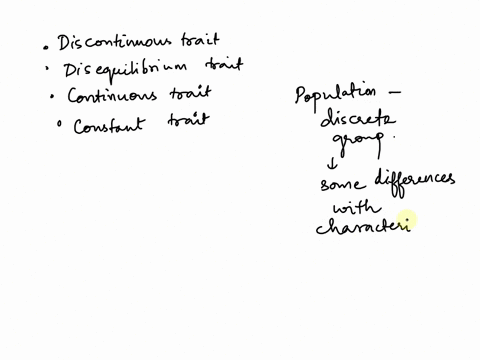 . Discontinuous trait
. Disequilibrium trait
. Continuous trait
. Constant trait
Population -
discrete
group.
↓
some differences
with
characteri